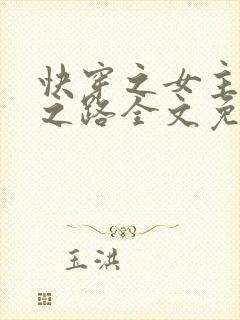 快穿之女主
之路全文免
玉洪